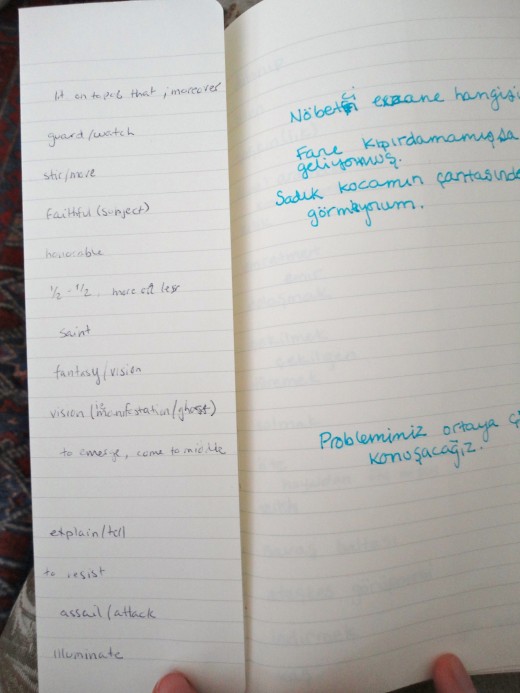 lit on top of that, moreover
guard/watch
stir/move
faithful (subject)
honorable
1/2 - 1/2, more or less
saint
fantasy/vision
vision (ie manifestation/ghost)
to emerge, come to middle
explain/tell
to resist
assail/attack
illuminate
Nöbetçi eczane hangisi
Fare kıpırdamamışsa
geliyormuş.
Sadık kocamın çantasında
görmüyorum.
Probleminiz ortaya çı
konuşacağız.